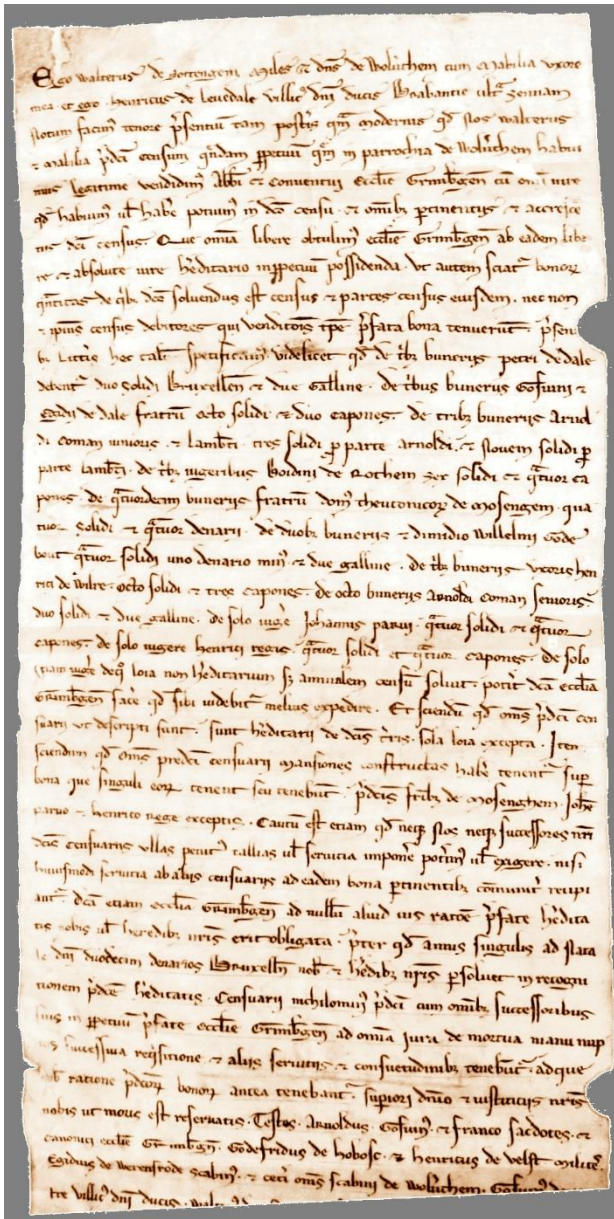 Ego walterus de Zottengem Miles et dns de Wolůchem cum Mabilia uxore
mea et ego Henricus de Levedale villic' dni ducis Brabantie ultra zennam
Notum facim' tenore p̄sentium tam post'is qm̄ modernis qd Nos walterus
& Mabilia p̄dc̄i censum q̄ndam ꝑpetuū q̄m in parrochia de Wolůchem habui
mus legitime vendidim' Abb̄i & conventui Ecclie Grimb̄gen̄ cū om̄i iure
qd habuim' ul hab̄e potuim' in dc̄o censu . & om̄ibꝫ ꝑtinentiis & accreisce
tiis dc̄i census. Que om̄ia libere obtulim' ecclie Grimb̄gen̄ ab eadem libe
re & absolute iure h̄editario inꝑpetuū possidenda. Ut autem sciat̄ bonoꝝ
q̄ntitas de q̄ibꝫ dc̄us solvendus est census & partes census eiusdem . nec non
& ipius census debitores qui venditōis tp̄e p̄fata bona tenuerūt . p̄senti
bꝫ litt̄is hec eab̄t specificam' videlicet qd de t̄bꝫ buneriis petri de dale
debent̄ duo solidi Bruxellen̄ & due Galline . de t̄bus buneriis Gosuini &
Egidii de dale fratrū octo solidi & duo capones. de tribꝫ buneriis Arnol
di coman iunioris . & lamb̄ti . tres solidi ꝓ parte arnoldi . & Novem solidi ꝓ
parte lamb̄ti . de t̄bꝫ iugeribus Boidini de Rothem sex solidi & q̄tuor ca
pones. de q̄tuordecim buneriis fratrū dom' theutonicoꝝ de Mosengem. qua
tuor solidi & q̄tuor denarii . de duobꝫ buneriis & dimidio Willelmi Gode
bout q̄tuor solidi uno denario min' & due galline . de t̄bꝫ buneriis uxoris hen
rici de wilre . octo solidi & tres capones . de octo buneriis Arnoldi coman senioris
duo solidi & due galline . de solo iuḡe Johannis parui . q̄tuor solidi & q̄tuor
capones . de solo iugere henrici regis . q̄tuor solidi et q̄tuor capones . de solo
etiam iuḡe de q̄ loia non h̄editarium sꝫ annualem censū soluit . pot̄it dc̄a ecclia
Grimb̄gen̄ fac̄e qd sibi uidebit̄ melius expedire . Et sciendū qd om̄s p̄dc̄i cen
suarii ut descripti sunt . sunt h̄editarii de dc̄is t̄ris . sola loia excepta . Item
sciendum qd om̄s predc̄i censuarii Mansiones constructas hab̄e tenent̄ sup
bona que singuli eoꝝ tenent seu tenebunt . p̄dc̄is fribꝫ de Mosenghem . Joh̄e
paruo & henrico rege exceptis . Cautū est etiam qd neqꝫ Nos neqꝫ successores nr̄i
dc̄is censuariis ullas penit' tallias ul seruicia impon̄e pot̄im' ul exigere . nisi
huiusmodi seruicia ab aliis censuariis ad eadem bona ꝑtinentibꝫ cōmunit̄ recipi
ant̄ dc̄a etiam ecclia Grimb̄gen̄ ad nullū aliud ius ratōe p̄fate h̄edita
tis nobis ul heredibꝫ nr̄is erit obligata . p̄ter qd annis singulis ad Nata
le dni duodecim denarios Bruxelln̄ nob̄ & h̄edibꝫ nr̄is ꝑsoluet in recogni
tionem p̄dc̄e h̄editatis . Censuarii nichilomin' p̄dc̄i cum om̄ibꝫ successoribus
suis in ꝑpetuū p̄fate ecclie Grimb̄gen̄ ad om̄ia iura de mortua manu nup
successiua req̄isitione & aliis seruitiis & consuetudinibꝫ tenebūt̄ . ad que
nob̄ ratione p̄dc̄oꝝ bonoꝝ antea tenebant̄ . supiori dn̄io & iusticiis nr̄is
nobis ut moris est reseruatis . Testes . Arnoldus . Gosuin' . & franco sac̄dotes . &
canonici ecclie Grimb̄gn̄ . Godefridus de hobosc . & henricus de velst milites
Egidius de Werensrode scabin' . & cet̄i om̄s scabini de Wolůchem .
villic' dni ducis .